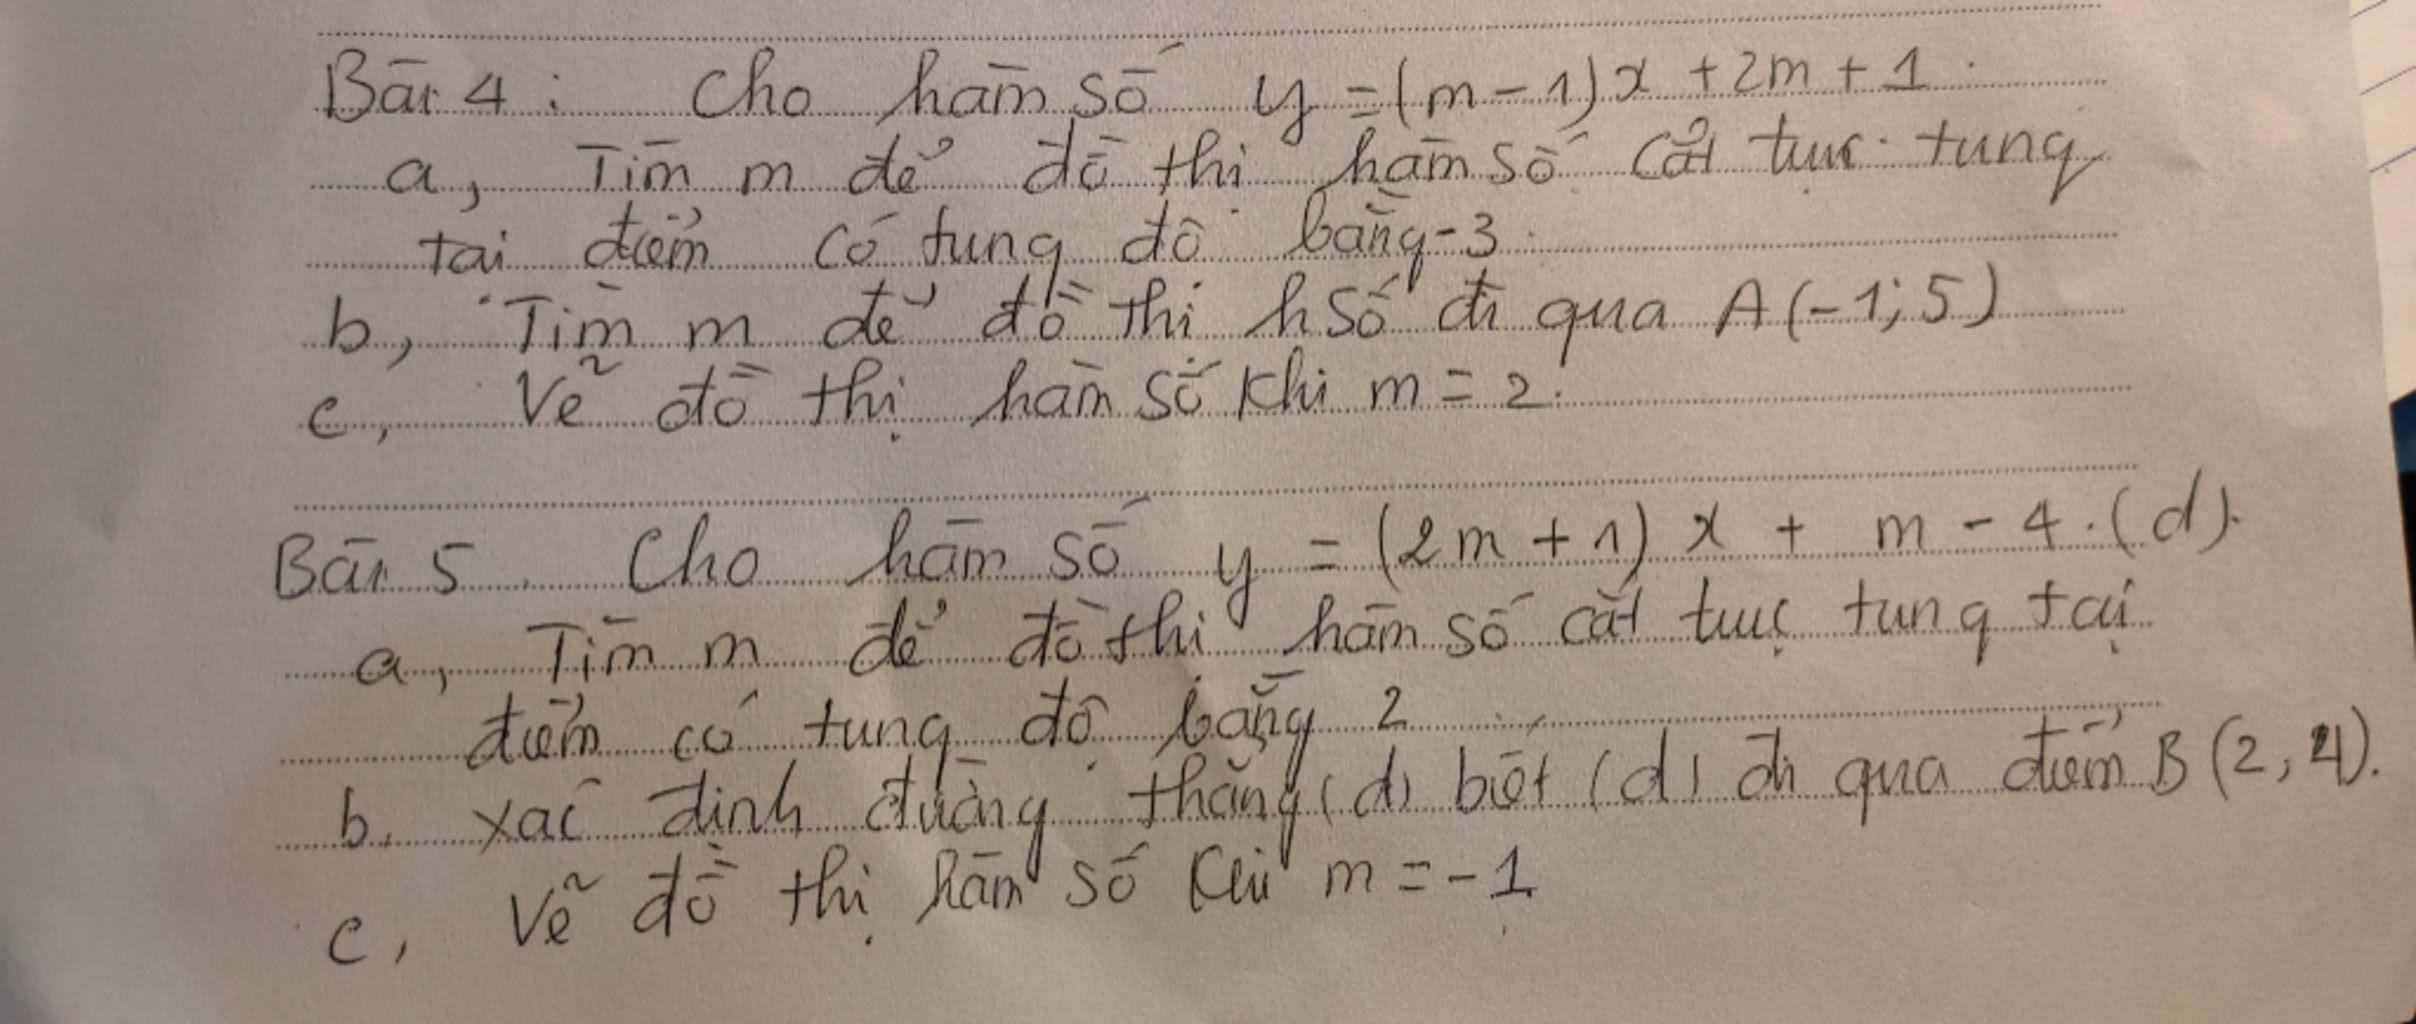 Bài 4: Cho hàm số y = (m - 1)x + 2m + 1.
a, Tìm m để đồ thị hàm số cắt trục tung
tại điểm có tung độ bằng -3.
b, Tìm m để đồ thị h số đi qua A(-1; 5)
c, Vẽ đồ thị hàm số khi m = 2.
Bài 5. Cho hàm số y = (2m + 1) x + m - 4. (d).
a, Tìm m để đồ thị hàm số cắt trục tung tại
điểm có tung độ bằng 2
b. xác định đường thẳng (d) biết (d) đi qua điểm B (2, 4).
c, Vẽ đồ thị hàm số khi m = -1